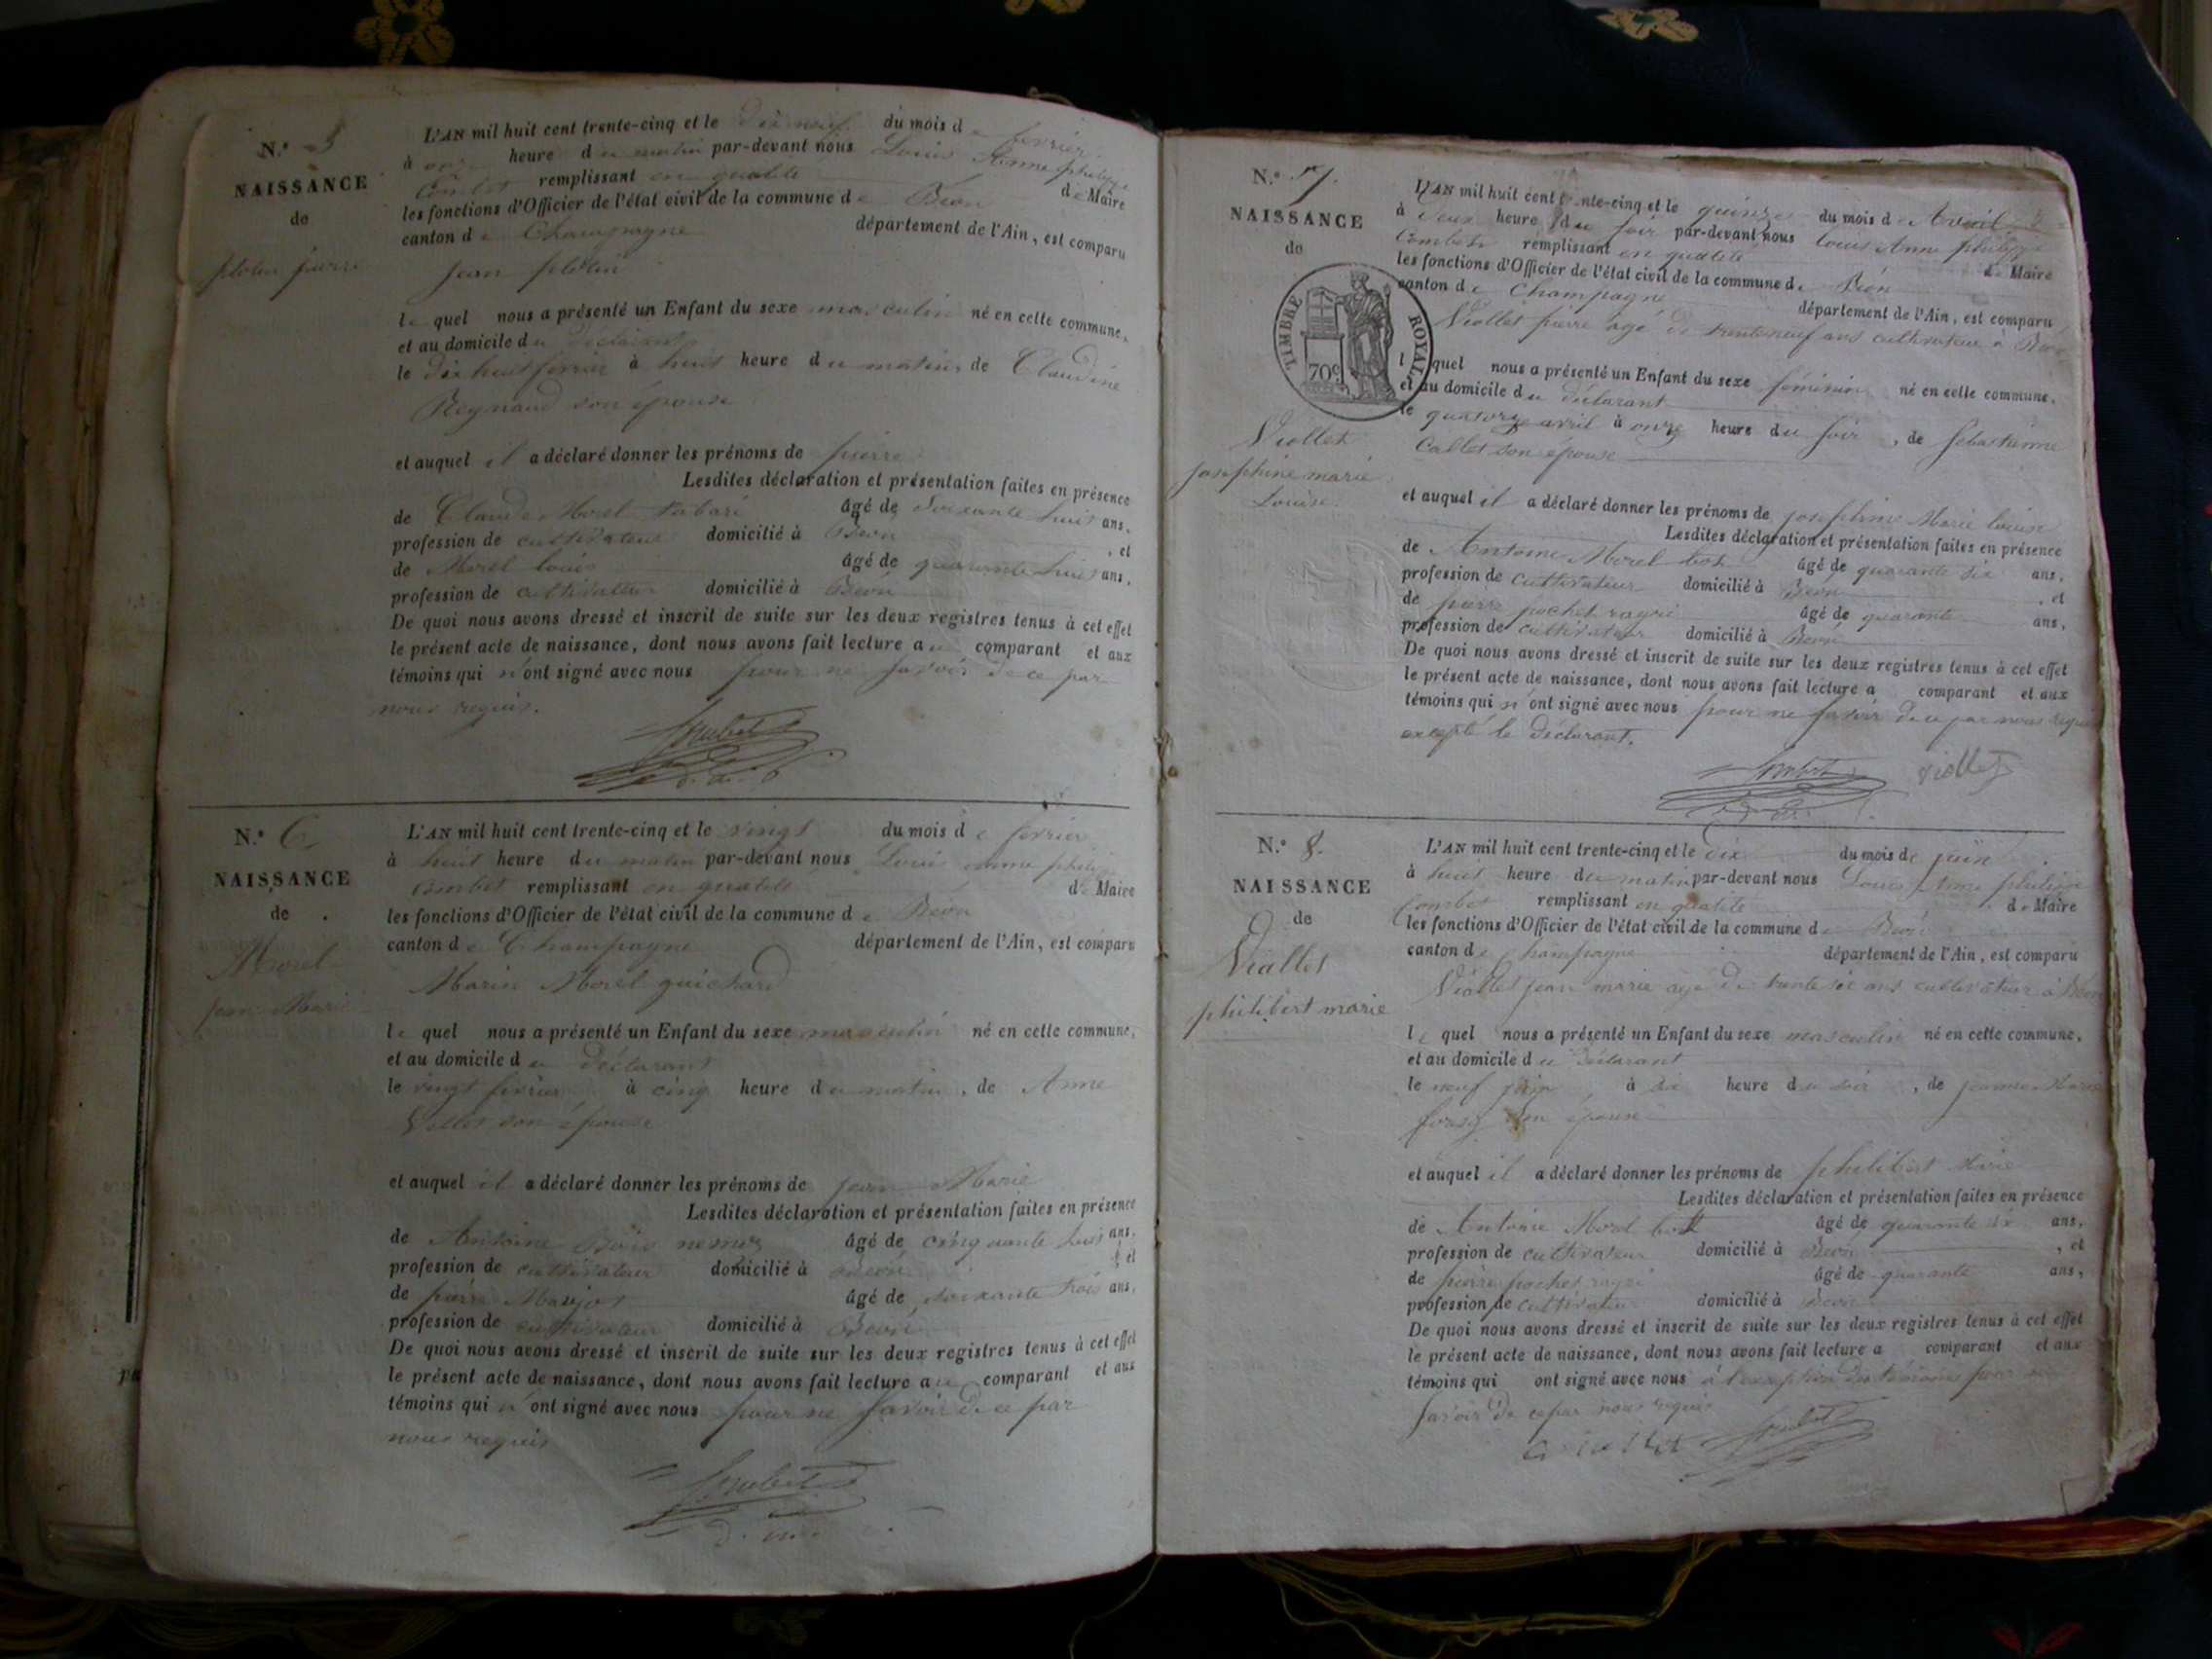 N.° 5
NAISSANCE
de
pierre
L'AN mil huit cent trente-cinq et le dix neuf du mois de février
à onze heure du matin par-devant nous Louis Anne philippe
Combet remplissant en qualité de Maire
les fonctions d'Officier de l'état civil de la commune de Béon
canton de Champagne département de l'Ain, est comparu
jean
le quel nous a présenté un Enfant du sexe masculin né en cette commune,
et au domicile du déclarant
le dix huit février à huit heure du matin, de Claudine
Reynaud son épouse
et auquel il a déclaré donner les prénoms de pierre
Lesdites déclaration et présentation faites en présence
de Claude Morel âgé de soixante huit ans,
profession de cultivateur domicilié à Béon, et
de Morel louis âgé de quarante huit ans,
profession de cultivateur domicilié à Béon
De quoi nous avons dressé et inscrit de suite sur les deux registres tenus à cet effet
le présent acte de naissance, dont nous avons fait lecture au comparant et aux
témoins qui n'ont signé avec nous pour ne savoir de ce par
nous requis.
N.° 6
NAISSANCE
de
Morel
jean Marie
L'AN mil huit cent trente-cinq et le vingt du mois de février
à huit heure du matin par-devant nous Louis anne philippe
Combet remplissant en qualité de Maire
les fonctions d'Officier de l'état civil de la commune de Béon
canton de Champagne département de l'Ain, est comparu
Marin Morel guichard
le quel nous a présenté un Enfant du sexe masculin né en cette commune,
et au domicile du déclarant
le vingt février à cinq heure du matin, de Anne
son épouse
et auquel il a déclaré donner les prénoms de jean Marie
Lesdites déclaration et présentation faites en présence
de Antoine âgé de cinquante huit ans,
profession de cultivateur domicilié à Béon, et
de pierre âgé de soixante trois ans,
profession de cultivateur domicilié à Béon
De quoi nous avons dressé et inscrit de suite sur les deux registres tenus à cet effet
le présent acte de naissance, dont nous avons fait lecture au comparant et aux
témoins qui n'ont signé avec nous pour ne savoir de ce par
nous requis
N.° 7.
NAISSANCE
de
TIMBRE ROYAL
70c
Viollet
josephine marie
Louise
L'AN mil huit cent trente-cinq et le quinze du mois d Avril
à deux heure du soir par-devant nous louis Anne philippe
Combet remplissant en qualité de Maire
les fonctions d'Officier de l'état civil de la commune de Béon
canton de Champagne département de l'Ain, est comparu
Viollet pierre âgé de trente neuf ans cultivateur à Béon
l quel nous a présenté un Enfant du sexe féminin né en cette commune,
et au domicile du déclarant
le quatorze avril à onze heure du soir, de sebastienne
Callet son épouse
et auquel il a déclaré donner les prénoms de josephine Marie louise
Lesdites déclaration et présentation faites en présence
de Antoine Morel bot âgé de quarante six ans,
profession de cultivateur domicilié à Béon, et
de pierre pochet âgé de quarante ans,
profession de cultivateur domicilié à Béon
De quoi nous avons dressé et inscrit de suite sur les deux registres tenus à cet effet
le présent acte de naissance, dont nous avons fait lecture a comparant et aux
témoins qui n'ont signé avec nous pour ne savoir de ce par nous requis
excepté le déclarant.
viollet
N.° 8.
NAISSANCE
de
Viallet
philibert marie
L'AN mil huit cent trente-cinq et le dix du mois de juin
à huit heure du matin par-devant nous Louis Anne philippe
Combet remplissant en qualité de Maire
les fonctions d'Officier de l'état civil de la commune de Béon
canton de Champagne département de l'Ain, est comparu
Viallet jean marie age de trente six ans cultivateur à Béon
le quel nous a présenté un Enfant du sexe masculin né en cette commune,
et au domicile du déclarant
le neuf juin à six heure du soir, de jeanne Marie
son épouse
et auquel il a déclaré donner les prénoms de philibert Marie
Lesdites déclaration et présentation faites en présence
de Antoine Morel bot âgé de quarante six ans,
profession de cultivateur domicilié à Béon, et
de pierre pochet âgé de quarante ans,
profession de cultivateur domicilié à Béon
De quoi nous avons dressé et inscrit de suite sur les deux registres tenus à cet effet
le présent acte de naissance, dont nous avons fait lecture a comparant et aux
témoins qui ont signé avec nous à l'exception des témoins pour ne
savoir de ce par nous requis